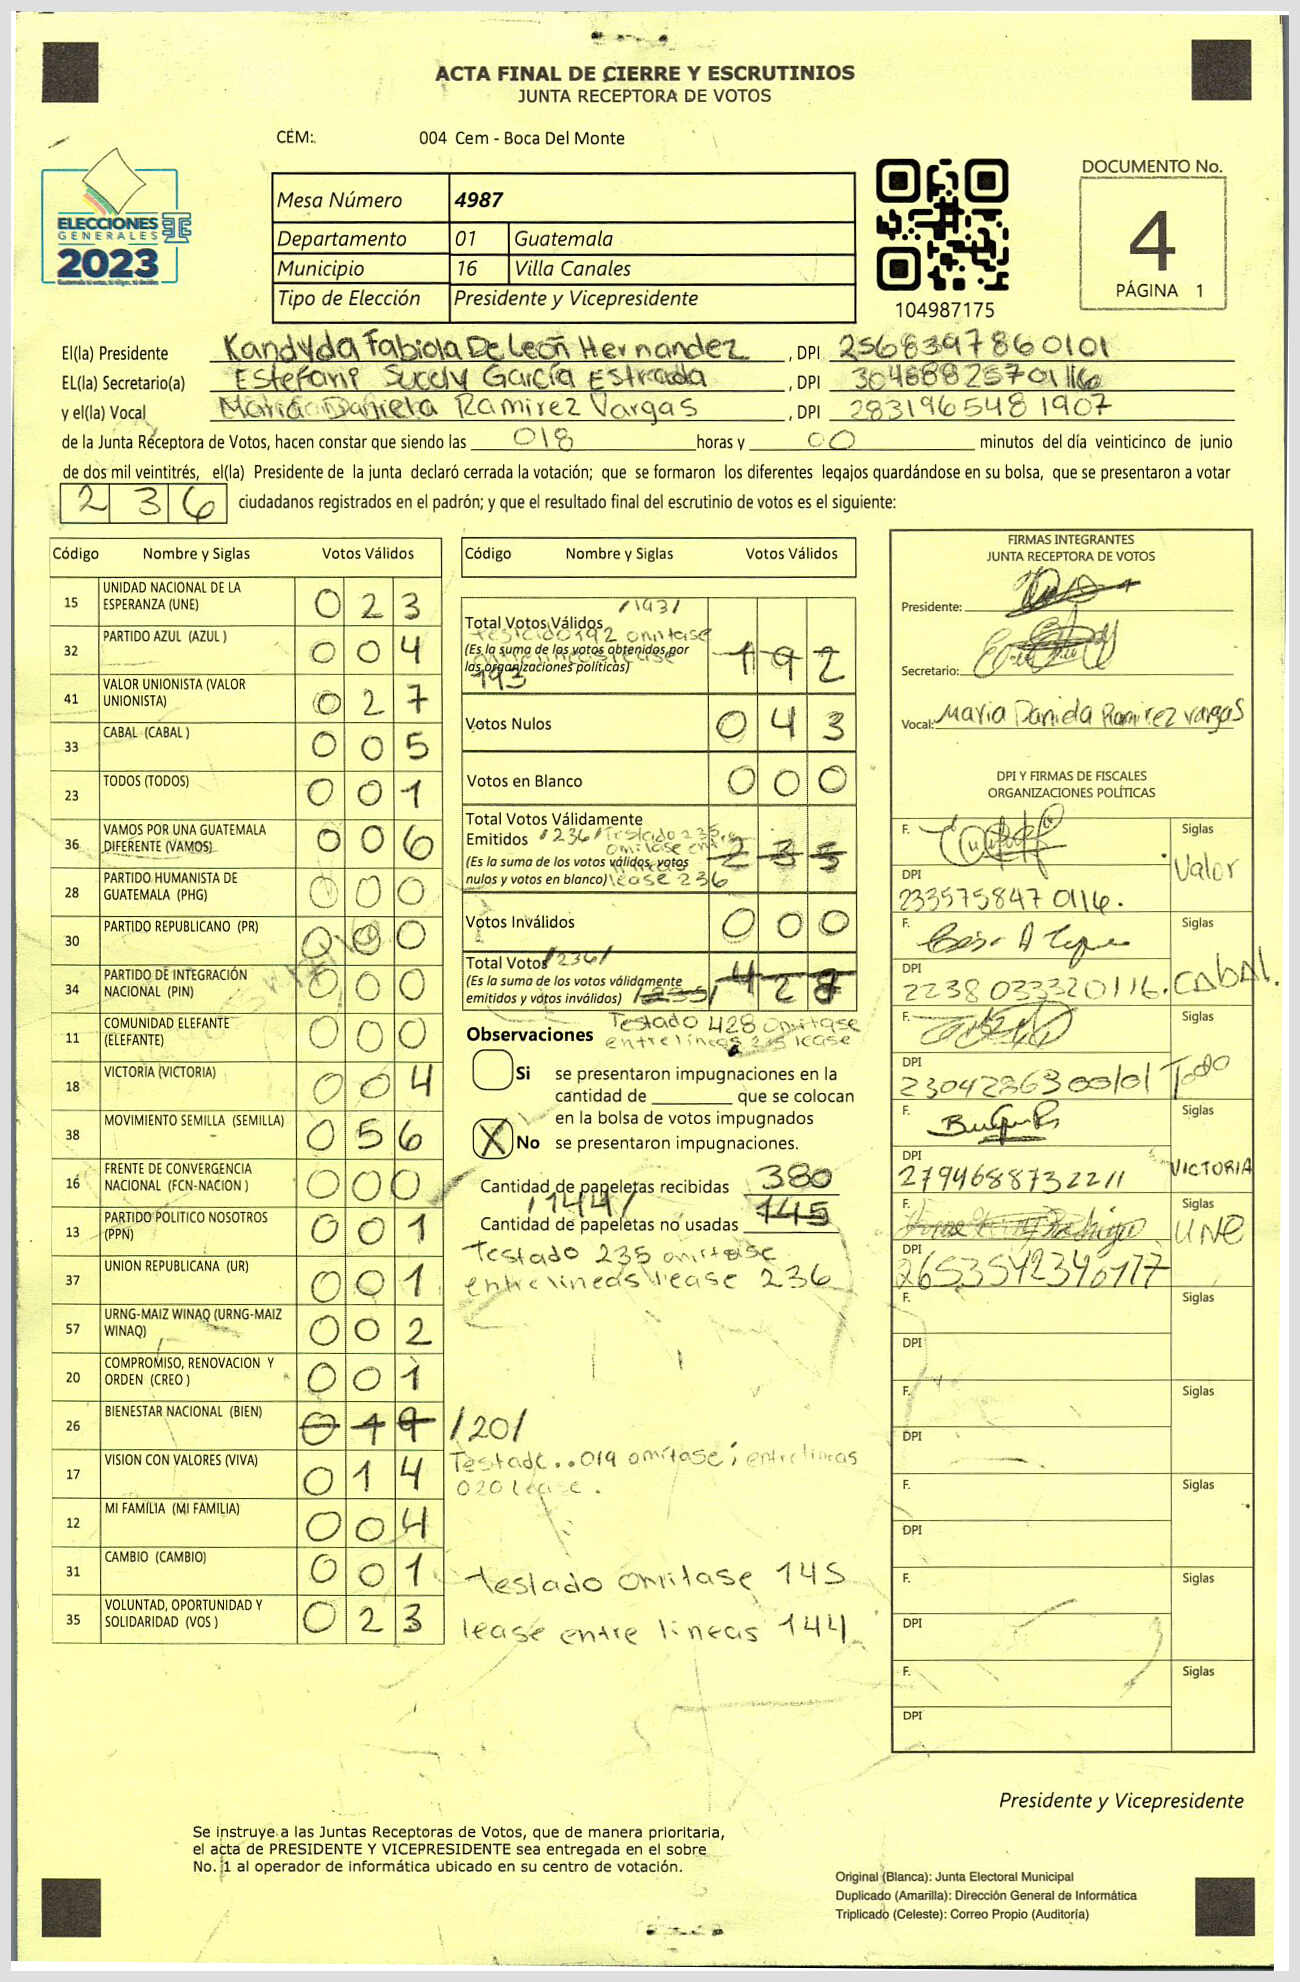 ACTA FINAL DE CIERRE Y ESCRUTINIOS
JUNTA RECEPTORA DE VOTOS
CEM: 004 Cem - Boca Del Monte
ELECCIONES
GENERALES
2023
Mesa Número 4987
Departamento 01 Guatemala
Municipio 16 Villa Canales
Tipo de Elección Presidente y Vicepresidente
104987175
DOCUMENTO No.
4
PÁGINA 1
El(la) Presidente Kandyda Fabiola De León Hernandez, DPI 2568397860101
EL(la) Secretario(a) Estefani Sucely García Estrada, DPI
y el(la) Vocal Maria Daniela Ramirez Vargas, DPI 2831965481907
de la Junta Receptora de Votos, hacen constar que siendo las 018 horas y 00 minutos del día veinticinco de junio
de dos mil veintitrés, el(la) Presidente de la junta declaró cerrada la votación; que se formaron los diferentes legajos quardándose en su bolsa, que se presentaron a votar
236 ciudadanos registrados en el padrón; y que el resultado final del escrutinio de votos es el siguiente:
Código Nombre y Siglas Votos Válidos
15 UNIDAD NACIONAL DE LA ESPERANZA (UNE) 023
32 PARTIDO AZUL (AZUL ) 004
41 VALOR UNIONISTA (VALOR UNIONISTA) 027
33 CABAL (CABAL ) 005
23 TODOS (TODOS) 001
36 VAMOS POR UNA GUATEMALA DIFERENTE (VAMOS) 006
28 PARTIDO HUMANISTA DE GUATEMALA (PHG) 000
30 PARTIDO REPUBLICANO (PR) 000
34 PARTIDO DE INTEGRACIÓN NACIONAL (PIN) 000
11 COMUNIDAD ELEFANTE (ELEFANTE) 000
18 VICTORIA (VICTORIA) 004
38 MOVIMIENTO SEMILLA (SEMILLA) 056
16 FRENTE DE CONVERGENCIA NACIONAL (FCN-NACION ) 000
13 PARTIDO POLITICO NOSOTROS (PPN) 001
37 UNION REPUBLICANA (UR) 001
57 URNG-MAIZ WINAQ (URNG-MAIZ WINAQ) 002
20 COMPROMISO, RENOVACION Y ORDEN (CREO ) 001
26 BIENESTAR NACIONAL (BIEN) 019 /20/
Testado..019 omitase; entrelineas
020 lease.
17 VISION CON VALORES (VIVA) 014
12 MI FAMILIA (MI FAMILIA) 004
31 CAMBIO (CAMBIO) 001
35 VOLUNTAD, OPORTUNIDAD Y SOLIDARIDAD (VOS ) 023
Código Nombre y Siglas Votos Válidos
/193/
Total Votos Válidos 192
testado 192 omitase
(Es la suma de los votos obtenidos por
entrelineas lease
las organizaciones políticas)
193
Votos Nulos 043
Votos en Blanco 000
Total Votos Válidamente
Emitidos /236/ Testado 235 omitase entrelineas lease 236
(Es la suma de los votos válidos, votos
nulos y votos en blanco) 235
Votos Inválidos 000
Total Votos /236/
(Es la suma de los votos válidamente
emitidos y votos inválidos) /235/ 428
Testado 428 omitase
entrelineas 235 lease
Observaciones
Si se presentaron impugnaciones en la
cantidad de ________ que se colocan
en la bolsa de votos impugnados
X No se presentaron impugnaciones.
Cantidad de papeletas recibidas 380
/144/
Cantidad de papeletas no usadas 145
Testado 235 omitase
entrelineas lease 236
testado omitase 145
lease entre lineas 144
FIRMAS INTEGRANTES
JUNTA RECEPTORA DE VOTOS
Presidente:
Secretario:
Vocal: Maria Daniela Ramirez Vargas
DPI Y FIRMAS DE FISCALES
ORGANIZACIONES POLÍTICAS
F. Siglas Valor
DPI 2335758470116.
F. Siglas CABAL.
DPI 2238033320116.
F. Siglas Todo
DPI 2304236300101
F. Siglas VICTORIA
DPI 2794688732211
F. Siglas UNE
DPI
F. Siglas
DPI
F. Siglas
DPI
F. Siglas
DPI
F. Siglas
DPI
F. Siglas
DPI
Presidente y Vicepresidente
Se instruye a las Juntas Receptoras de Votos, que de manera prioritaria,
el acta de PRESIDENTE Y VICEPRESIDENTE sea entregada en el sobre
No. 1 al operador de informática ubicado en su centro de votación.
Original (Blanca): Junta Electoral Municipal
Duplicado (Amarilla): Dirección General de Informática
Triplicado (Celeste): Correo Propio (Auditoría)